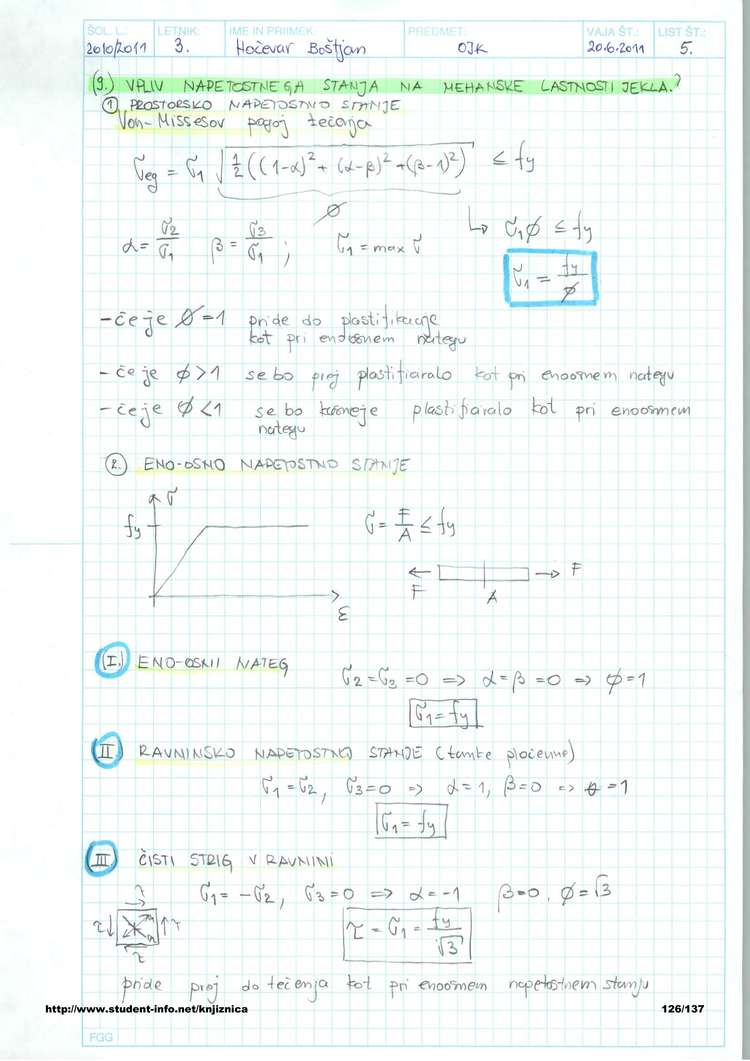 ŠOL. L.: LETNIK: IME IN PRIIMEK: PREDMET: VAJA ŠT.: LIST ŠT.:
2010/2011 3. Hočevar Boštjan OJK 20.6.2011 5.
(9.) VPLIV NAPETOSTNEGA STANJA NA MEHANSKE LASTNOSTI JEKLA.?
① PROSTORSKO NAPETOSTNO STANJE
Von-Missesov pogoj tečenja
σeg = σ1 √(1/2((1-α)² + (α-β)² + (β-1)²)) ≤ fy
ø
α = σ2/σ1 β = σ3/σ1 ; σ1 = max σ ↳ σ1ø ≤ fy
σ1 = fy/ø
- če je ø=1 pride do plastifikacije
kot pri enoosnem nategu
- če je ø>1 se bo prej plastificiralo kot pri enoosnem nategu
- če je ø<1 se bo kasneje plastificiralo kot pri enoosnem
nategu
② ENO-OSNO NAPETOSTNO STANJE
σ
fy σ = F/A ≤ fy
F F
A
ε
(I.) ENO-OSNI NATEG
σ2 = σ3 = 0 => α = β = 0 => ø = 1
σ1 = fy
(II) RAVNINSKO NAPETOSTNO STANJE (tanke pločevine)
σ1 = σ2, σ3 = 0 => α = 1, β = 0 => ø = 1
σ1 = fy
(III) ČISTI STRIG V RAVNINI
σ1 = -σ2, σ3 = 0 => α = -1 β = 0, ø = √3
τ
τ↓ ↑τ
τ
τ = σ1 = fy/√3
pride prej do tečenja kot pri enoosnem napetostnem stanju
http://www.student-info.net/knjiznica 126/137
FGG